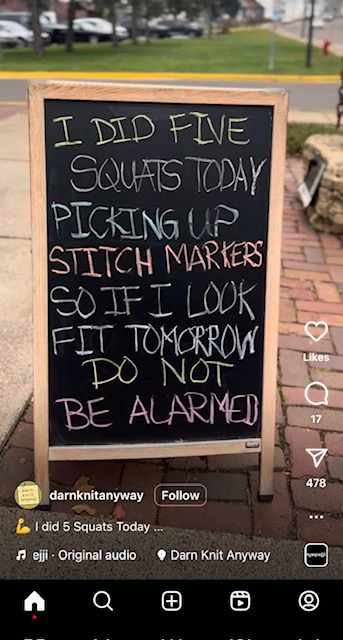 I DID FIVE
SQUATS TODAY
PICKING UP
STITCH MARKERS
SO IF I LOOK
FIT TOMORROW
DO NOT
BE ALARMED
Likes
17
478
darnknitanyway
Follow
💪 I did 5 Squats Today ...
ejji · Original audio
Darn Knit Anyway